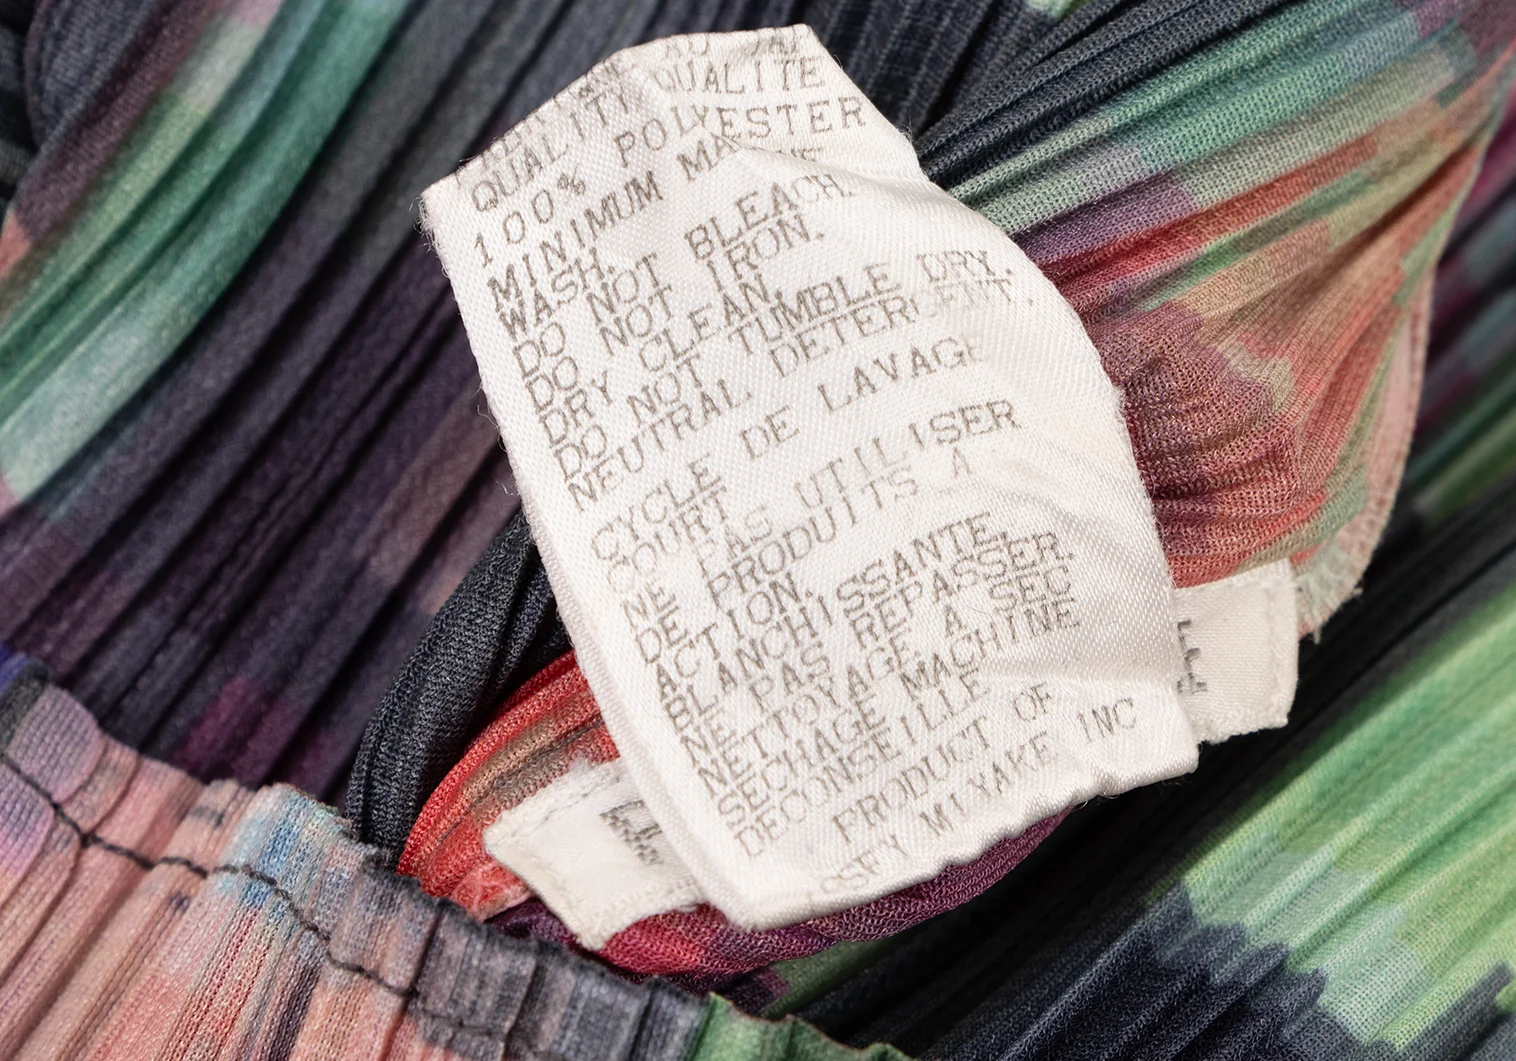 QUALITE
QUALITY
100% POLYESTER
MINIMUM MACHINE
WASH.
DO NOT BLEACH.
DO NOT IRON.
DRY CLEAN.
DO NOT TUMBLE DRY.
NEUTRAL DETERGENT.
CYCLE DE LAVAGE
COURT
NE PAS UTILISER
DE PRODUITS A
ACTION.
BLANCHISSANTE.
NE PAS REPASSER.
NETTOYAGE A SEC
SECHAGE MACHINE
DECONSEILLE
PRODUCT OF
MIYAKE INC